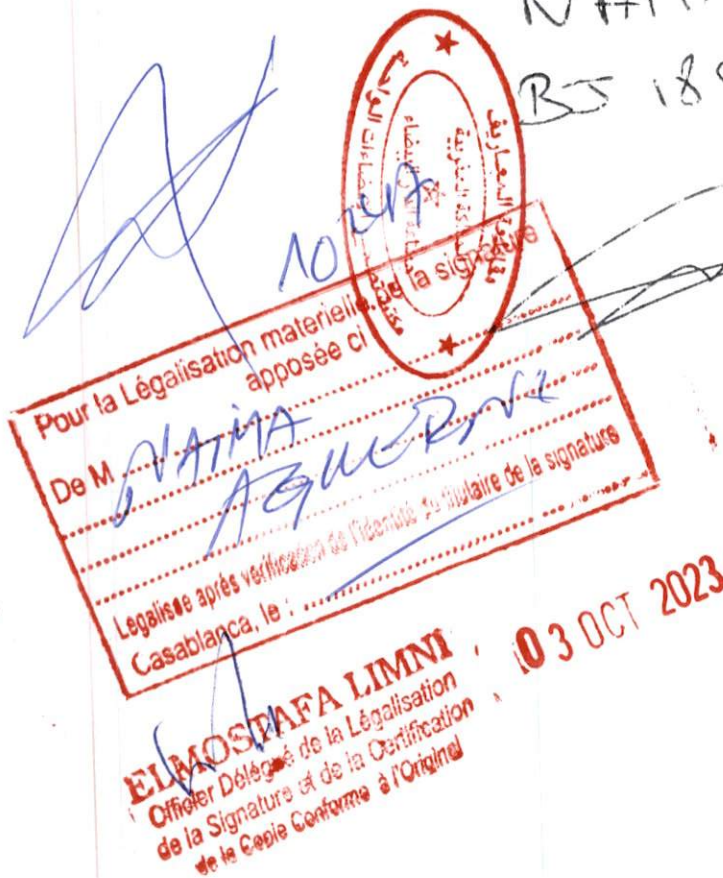 BJ 18
المملكة المغربية
Pour la Légalisation materielle, de la signature
apposée ci
De M NAIMA
AGUERDNI
Légalisée après vérification de l'identité du titulaire de la signature
Casablanca, le :
03 OCT 2023
ELMOSTAFA LIMNI
Officier Délégué de la Légalisation
de la Signature et de la Certification
de la Copie Conforme à l'Original